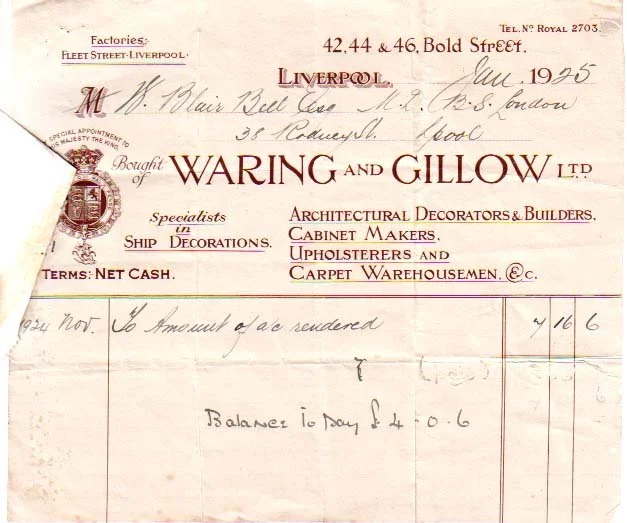 Factories:-
FLEET STREET-LIVERPOOL.
TEL. No ROYAL 2703.
42, 44 & 46, BOLD STREET.
LIVERPOOL, Jan 1925
M W. Blair Bell Esq M.D. (B.S. London
38 Rodney St. Lpool
SPECIAL APPOINTMENT TO
HIS MAJESTY THE KING.
Bought of WARING AND GILLOW LTD
Specialists
in
SHIP DECORATIONS.
ARCHITECTURAL DECORATORS & BUILDERS,
CABINET MAKERS,
UPHOLSTERERS AND
CARPET WAREHOUSEMEN, &c.
TERMS: NET CASH.
1924 Nov. To Amount of a/c rendered 7 16 6
Balance To Day £ 4 - 0 . 6